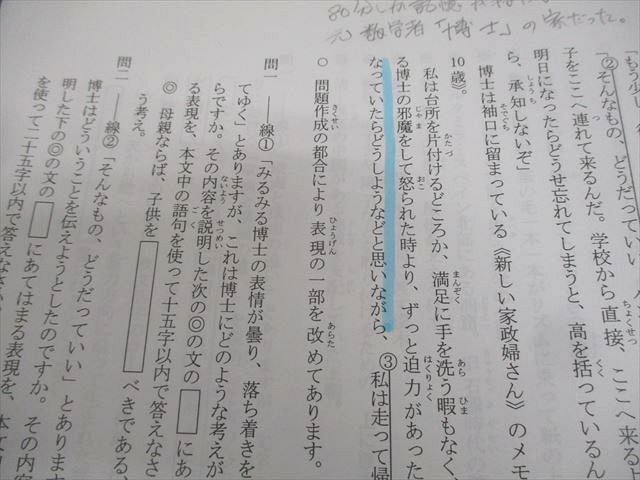 80分しか記憶が
元数学者「博士」の家だった。
「もう少
「②そんなもの、どうだってい
子をここへ連れて来るんだ。学校から直接、ここへ来る
明日になったらどうせ忘れてしまうと、高を括っているん
ら、承知しないぞ」
博士は袖口に留まっている《新しい家政婦さん》のメモ
10歳》。
私は台所を片付けるどころか、満足に手を洗う暇もなく、
る博士の邪魔をして怒られた時より、ずっと迫力があった
なっていたらどうしようなどと思いながら、③私は走って帰
○ 問題作成の都合により表現の一部を改めてあります。
問一 ――線①「みるみる博士の表情が曇り、落ち着きを
てゆく」とありますが、これは博士にどのような考えが
らですか。その内容を説明した次の◎の文の にあ
る表現を、本文中の語句を使って十五字以内で答えなさ
◎ 母親ならば、子供を べきである、
う考え。
問二 ――線②「そんなもの、どうだっていい」とあります
博士はどういうことを伝えようとしたのですか。その内容
明した下の◎の文の にあてはまる表現を、本文
を使って二十五字以内で答えなさい